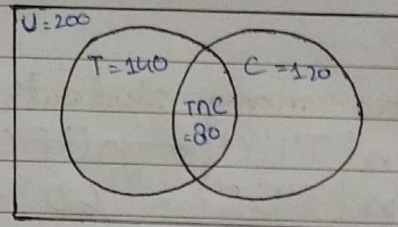 U=200
T=140
C=120
T∩C
=80